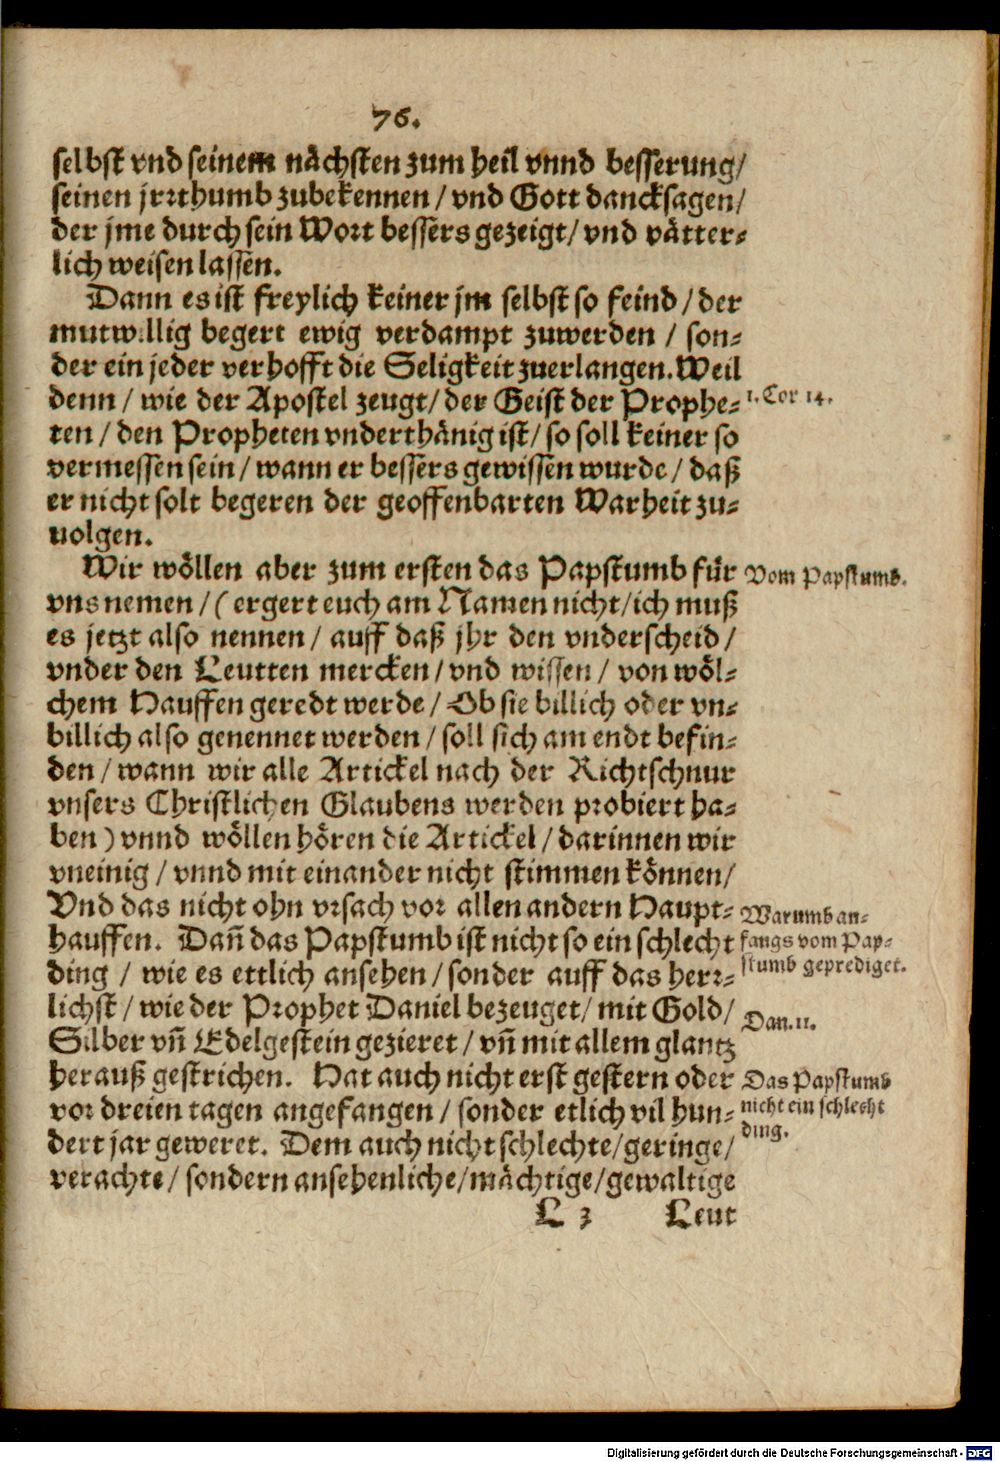 76.
selbst vnd seinem nächsten zum heil vnnd besserung/
seinen jrrthumb zubekennen / vnd Gott dancksagen/
der jme durch sein Wort bessers gezeigt/ vnd vätter-
lich weisen lassen.
Dann es ist freylich keiner jm selbst so feind / der
mutwillig begert ewig verdampt zuwerden / son-
der ein jeder verhofft die Seligkeit zuerlangen. Weil
denn / wie der Apostel zeugt/ der Geist der Prophe-
1. Cor 14.
ten / den Propheten vnderthänig ist/ so soll keiner so
vermessen sein / wann er bessers gewissen wurde / daß
er nicht solt begeren der geoffenbarten Warheit zu-
uolgen.
Wir wöllen aber zum ersten das Papstumb für
Vom Papstumb.
vns nemen / ( ergert euch am Namen nicht/ ich muß
es jetzt also nennen / auff daß jhr den vnderscheid /
vnder den Leutten mercken / vnd wissen / von wöl-
chem Hauffen geredt werde / Ob sie billich oder vn-
billich also genennet werden / soll sich am endt befin-
den / wann wir alle Artickel nach der Richtschnur
vnsers Christlichen Glaubens werden probiert ha-
ben ) vnnd wöllen hören die Artickel / darinnen wir
vneinig / vnnd mit einander nicht stimmen können/
Vnd das nicht ohn vrsach vor allen andern Haupt-
Warumb an-
hauffen. Dañ das Papstumb ist nicht so ein schlecht
fangs vom Pap-
stumb geprediget.
ding / wie es ettlich ansehen / sonder auff das herr-
lichst / wie der Prophet Daniel bezeuget/ mit Gold /
Dan. 11.
Silber vñ Edelgestein gezieret / vñ mit allem glantz
herauß gestrichen. Hat auch nicht erst gestern oder
Das Papstumb
vor dreien tagen angefangen / sonder etlich vil hun-
nicht ein schlecht
ding.
dert jar geweret. Dem auch nicht schlechte/ geringe /
verachte / sondern ansehenliche/ mächtige/ gewaltige
L 3 Leut
Digitalisierung gefördert durch die Deutsche Forschungsgemeinschaft - DFG